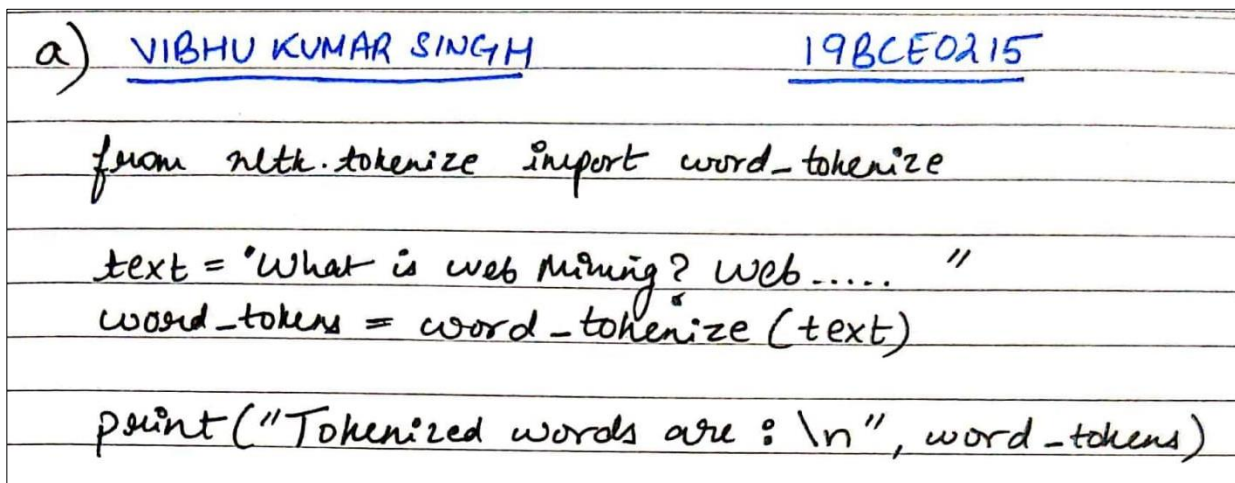 a) VIBHU KUMAR SINGH 19BCE0215
from nltk.tokenize import word_tokenize
text = "What is web Mining? Web..... "
word_tokens = word_tokenize (text)
print("Tokenized words are : \n", word_tokens)